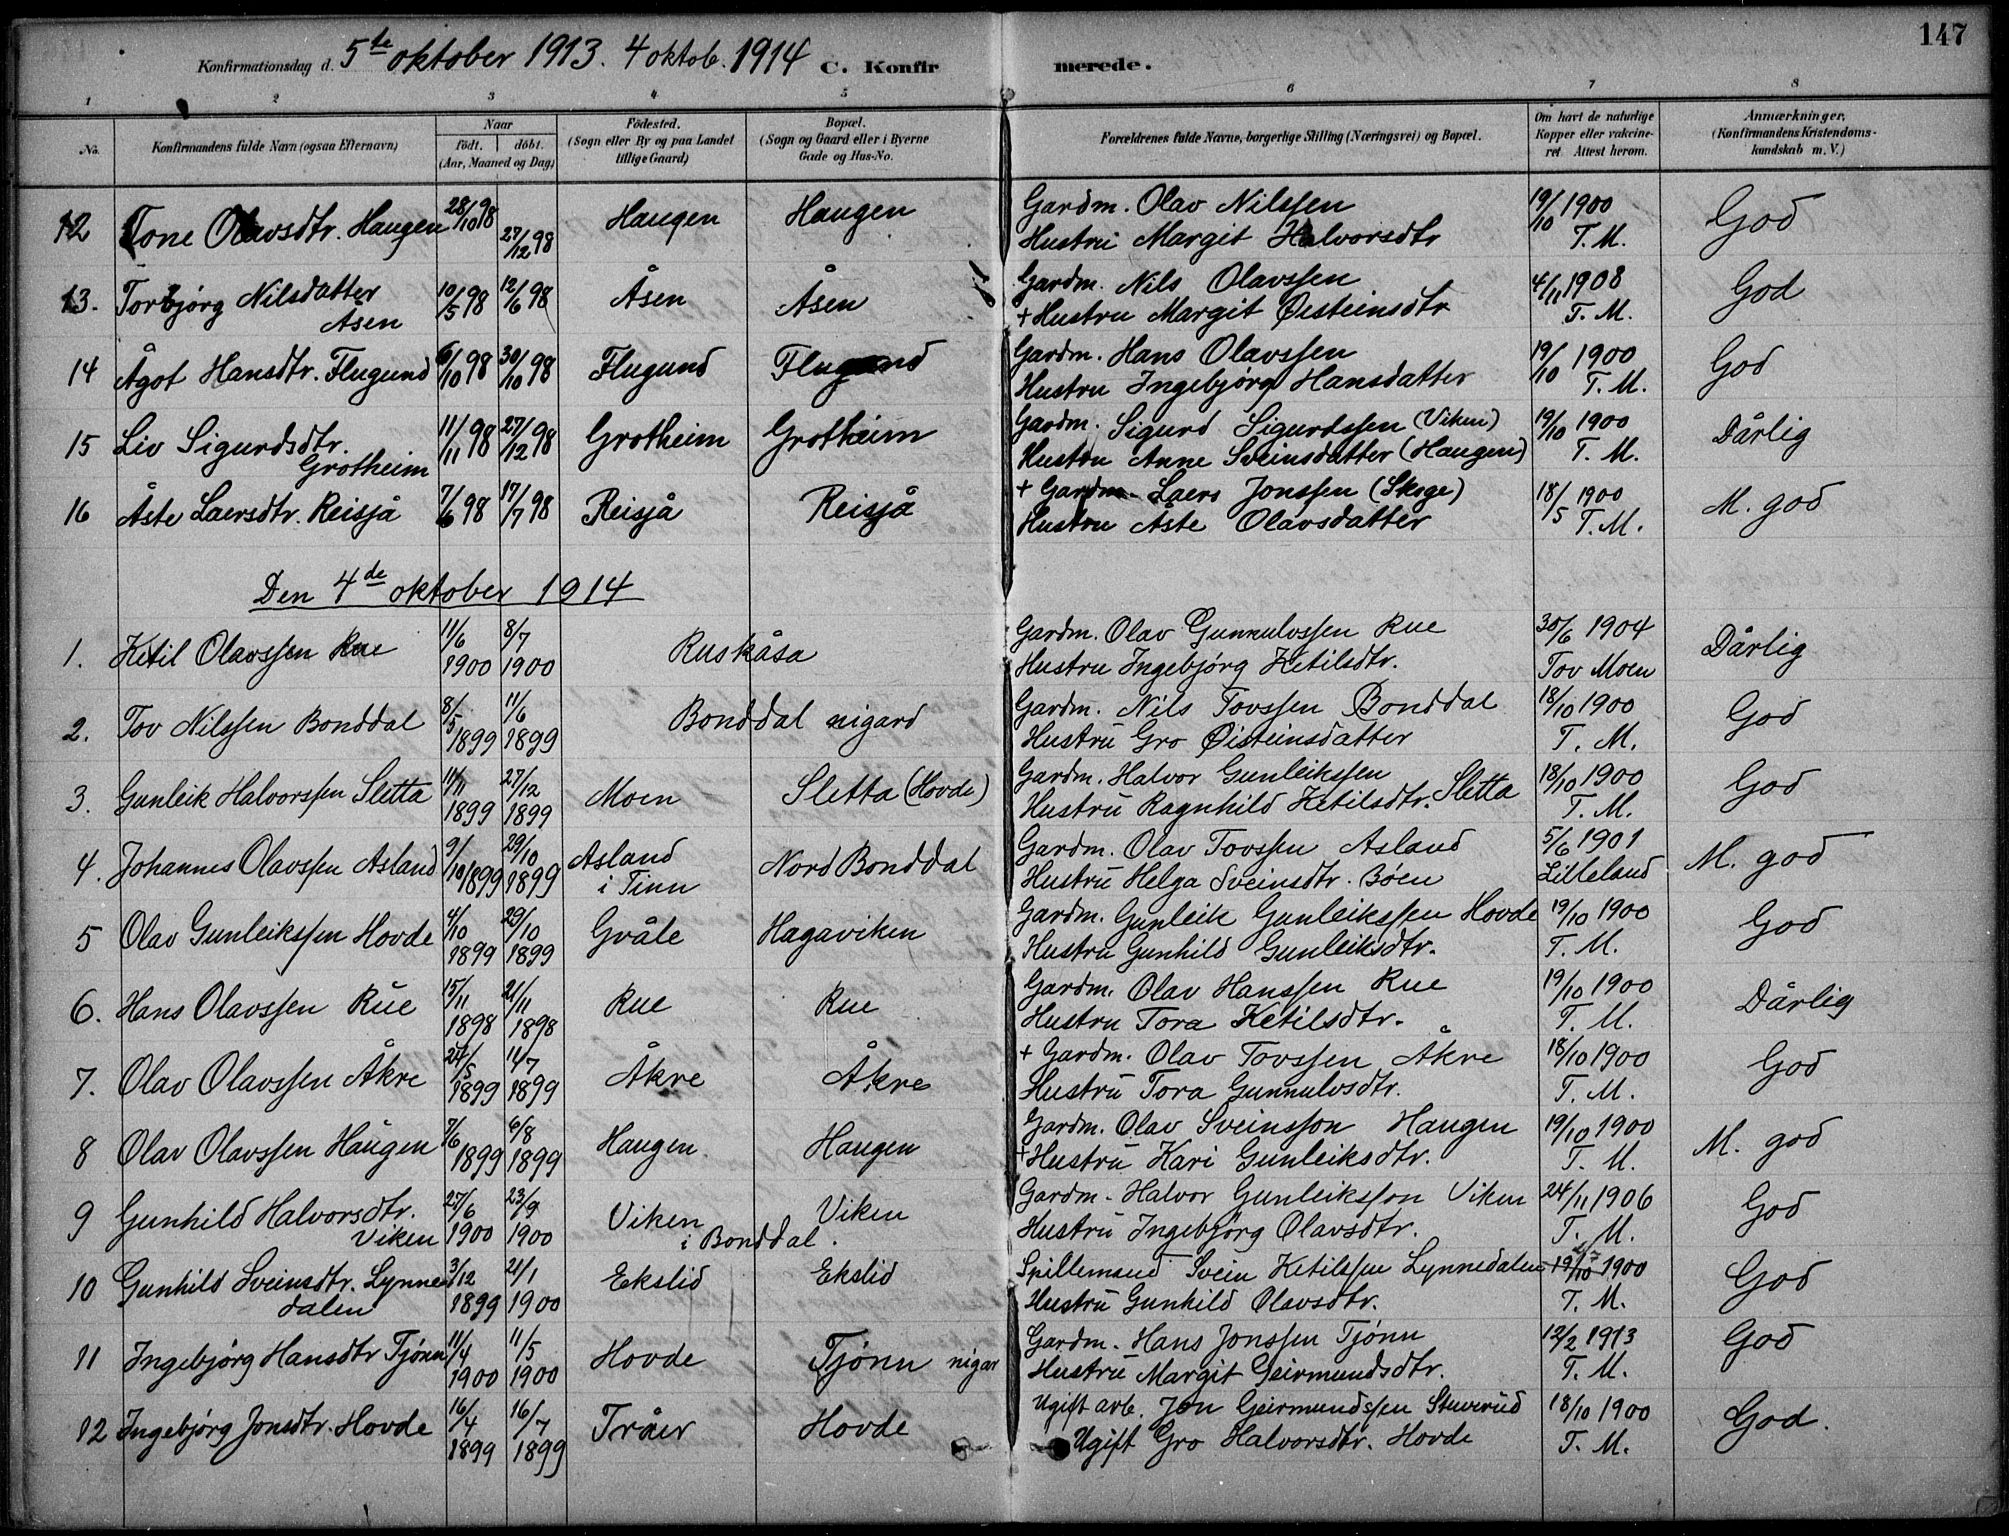 147
Konfirmationsdag d. 5te oktober 1913. 4 oktob. 1914 C. Konfirmerede.
1 2 3 4 5 6 7 8
No. | Konfirmandens fulde Navn (ogsaa Efternavn) | Naar født. døbt. (Aar, Maaned og Dag) | Fødested. (Sogn eller By og paa Landet tillige Gaard) | Bopæl. (Sogn og Gaard eller i Byerne Gade og Hus-No. | Forældrenes fulde Navne, borgerlige Stilling (Næringsvei) og Bopæl. | Om havt de naturlige Kopper eller vakcineret. Attest herom. | Anmærkninger. (Konfirmandens Kristendomskundskab m. V.)
12 Tone Olavsdtr. Haugen 28/10 98 27/12 98 Haugen Haugen Gardm. Olav Nilssen 19/10 1900 God
Hustru Margit Halvorsdtr T. M.
13. Torbjørg Nilsdatter 10/5 98 12/6 98 Åsen Åsen Gardm. Nils Olavssen 4/11 1908 God
Åsen + Hustru Margit Øisteinsdtr T. M.
14 Ågot Hansdtr. Flugund 6/10 98 30/10 98 Flugund Flugund Gardm. Hans Olavssen 19/10 1900 God
Hustru Ingebjørg Hansdatter T. M.
15 Liv Sigurdsdtr. 11/11 98 27/12 98 Grotheim Grotheim Gardm. Sigurd Sigurdssen (Viken) 19/10 1900 Dårlig
Grotheim Hustru Anne Sveinsdatter (Haugen) T. M.
16 Åste Laersdtr. Reisjå 7/6 98 17/7 98 Reisjå Reisjå + Gardm. Laers Jonssen (Skoge) 18/5 1900 M. god
Hustru Åste Olavsdatter T. M.
Den 4de oktober 1914
1. Ketil Olavssen Rue 11/6 1900 8/7 1900 Ruskåsa Gardm. Olav Gunnulvssen Rue 30/6 1904 Dårlig
Hustru Ingebjørg Ketilsdtr. Tov Moen
2. Tov Nilssen Bonddal 8/5 1899 11/6 1899 Bonddal nigard Gardm. Nils Tovssen Bonddal 18/10 1900 God
Hustru Gro Øisteinsdatter T. M.
3. Gunleik Halvorssen Sletta 11/11 1899 27/12 1899 Moen Sletta (Hovde) Gardm. Halvor Gunleikssen 18/10 1900 God
Hustru Ragnhild Ketilsdtr. Sletta T. M.
4. Johannes Olavssen Asland 9/10 1899 29/10 1899 Asland i Tinn Nord Bonddal Gardm. Olav Tovssen Asland 5/6 1901 M. god
Hustru Helga Sveinsdtr. Bøen Lilleland
5 Olav Gunleikssen Hovde 4/10 1899 29/10 1899 Gvåle Hagaviken Gardm. Gunleik Gunleikssen Hovde 19/10 1900 God
Hustru Gunhild Gunleiksdtr. T. M.
6. Hans Olavssen Rue 15/11 1898 21/11 1898 Rue Rue Gardm. Olav Hanssen Rue 19/10 1900 Dårlig
Hustru Tora Ketilsdtr. T. M.
7. Olav Olavssen Åkre 24/5 1899 14/7 1899 Åkre Åkre + Gardm. Olav Tovssen Åkre 18/10 1900 God
Hustru Tora Gunnulvsdtr. T. M.
8 Olav Olavssen Haugen 7/6 1899 6/8 1899 Haugen Haugen Gardm. Olav Sveinsson Haugen 19/10 1900 M. god
+ Hustru Kari Gunleiksdtr. T. M.
9 Gunhild Halvorsdtr. 27/6 1900 23/9 1900 Viken i Bonddal. Viken Gardm. Halvor Gunleiksson Viken 24/11 1906 God
Viken Hustru Ingebjørg Olavsdtr. T. M.
10 Gunhild Sveinsdtr. Lynne 3/12 1899 21/1 1900 Ekslid Ekslid Spillemand Svein Ketilssen Lynnedalen 19/10 1900 God
dalen Hustru Gunhild Olavsdtr. T. M.
11 Ingebjørg Hansdtr Tjønn 11/4 1900 11/5 1900 Hovde Tjønn nigar Gardm. Hans Jonssen Tjønn 12/2 1913 God
Hustru Margit Geirmundsdtr. T. M.
12 Ingebjørg Jonsdtr. Hovde 16/4 1899 16/7 1899 Tråer Hovde Ugift arb. Jon Geirmundssen Stuverud 18/10 1900 God.
Ugift Gro Halvorsdtr. Hovde T. M.